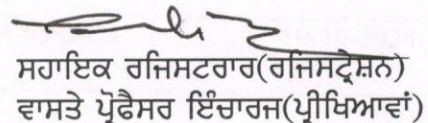 ਸਹਾਇਕ ਰਜਿਸਟਰਾਰ(ਰਜਿਸਟ੍ਰੇਸ਼ਨ)
ਵਾਸਤੇ ਪ੍ਰੋਫੈਸਰ ਇੰਚਾਰਜ(ਪ੍ਰੀਖਿਆਵਾਂ)